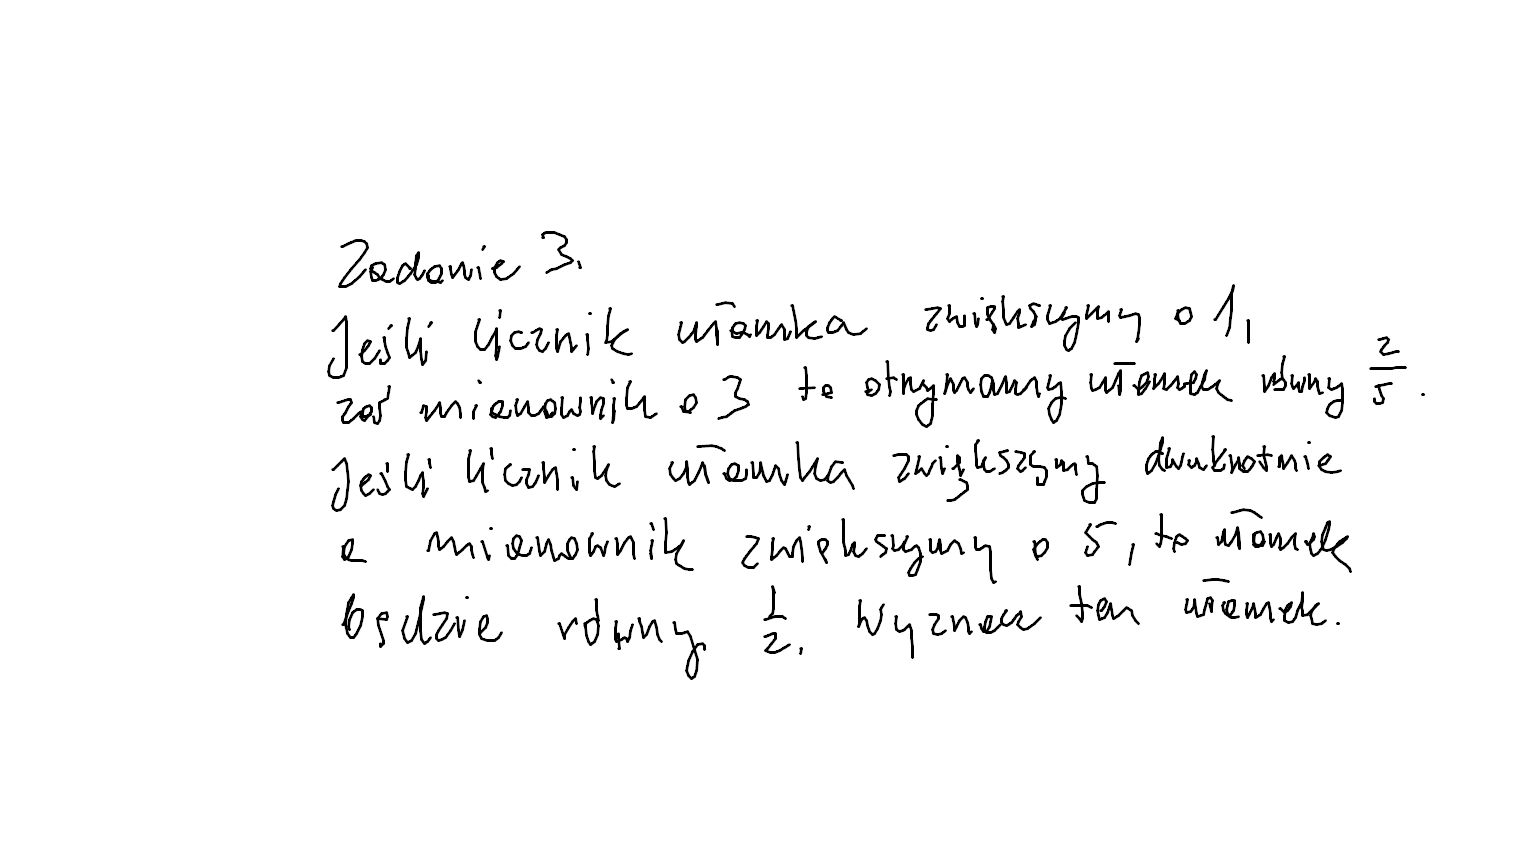 Zadanie 3.
Jeśli licznik ułamka zwiększymy o 1,
zaś mianownik o 3 to otrzymamy ułamek równy 2/5.
Jeśli licznik ułamka zwiększymy dwukrotnie
a mianownik zwiększymy o 5, to ułamek
będzie równy 1/2. Wyznacz ten ułamek.